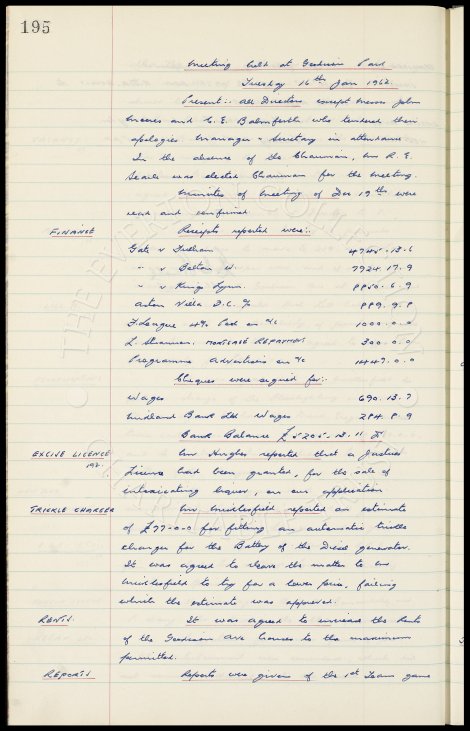 195
Meeting held at Goodison Park
Tuesday 16th Jan 1962.
Present:- All Directors except Messrs John
Moores and C. E. Balmforth who tendered their
apologies. Manager & Secretary in attendance
In the absence of the Chairman, Mr R. E.
Searle was elected Chairman for the meeting.
Minutes of Meeting of Dec 19th were
read and confirmed.
FINANCE Receipts reported were:-
Gate v Fulham 4745. 13. 6
" v Bolton W. 7924. 17. 9
" v Kings Lynn.
Aston Villa F.C. %
F. League 4% Pool on a/c 1000. 0. 0
MORTGAGE REPAYMENT 300. 0. 0
Programme Advertisers on a/c 1447. 0. 0
Cheques were signed for:-
Wages 690. 13. 7
Midland Bank Ltd Wages 284. 8. 9
Bank Balance £
EXCISE LICENCE Mr Hughes reported that a Justices
192. Licence had been granted, for the sale of
intoxicating liquor, on our application
TRICKLE CHARGER Mr Micklesfield reported an estimate
of £77-0-0 for fitting an automatic trickle
charger for the Battery of the Diesel generator.
It was agreed to leave the matter to Mr
Micklesfield to try for a lower price, failing
which the estimate was approved.
RENTS. It was agreed to increase the Rents
of the Goodison Ave houses to the maximum
permitted.
REPORTS Reports were given of the 1st Team game